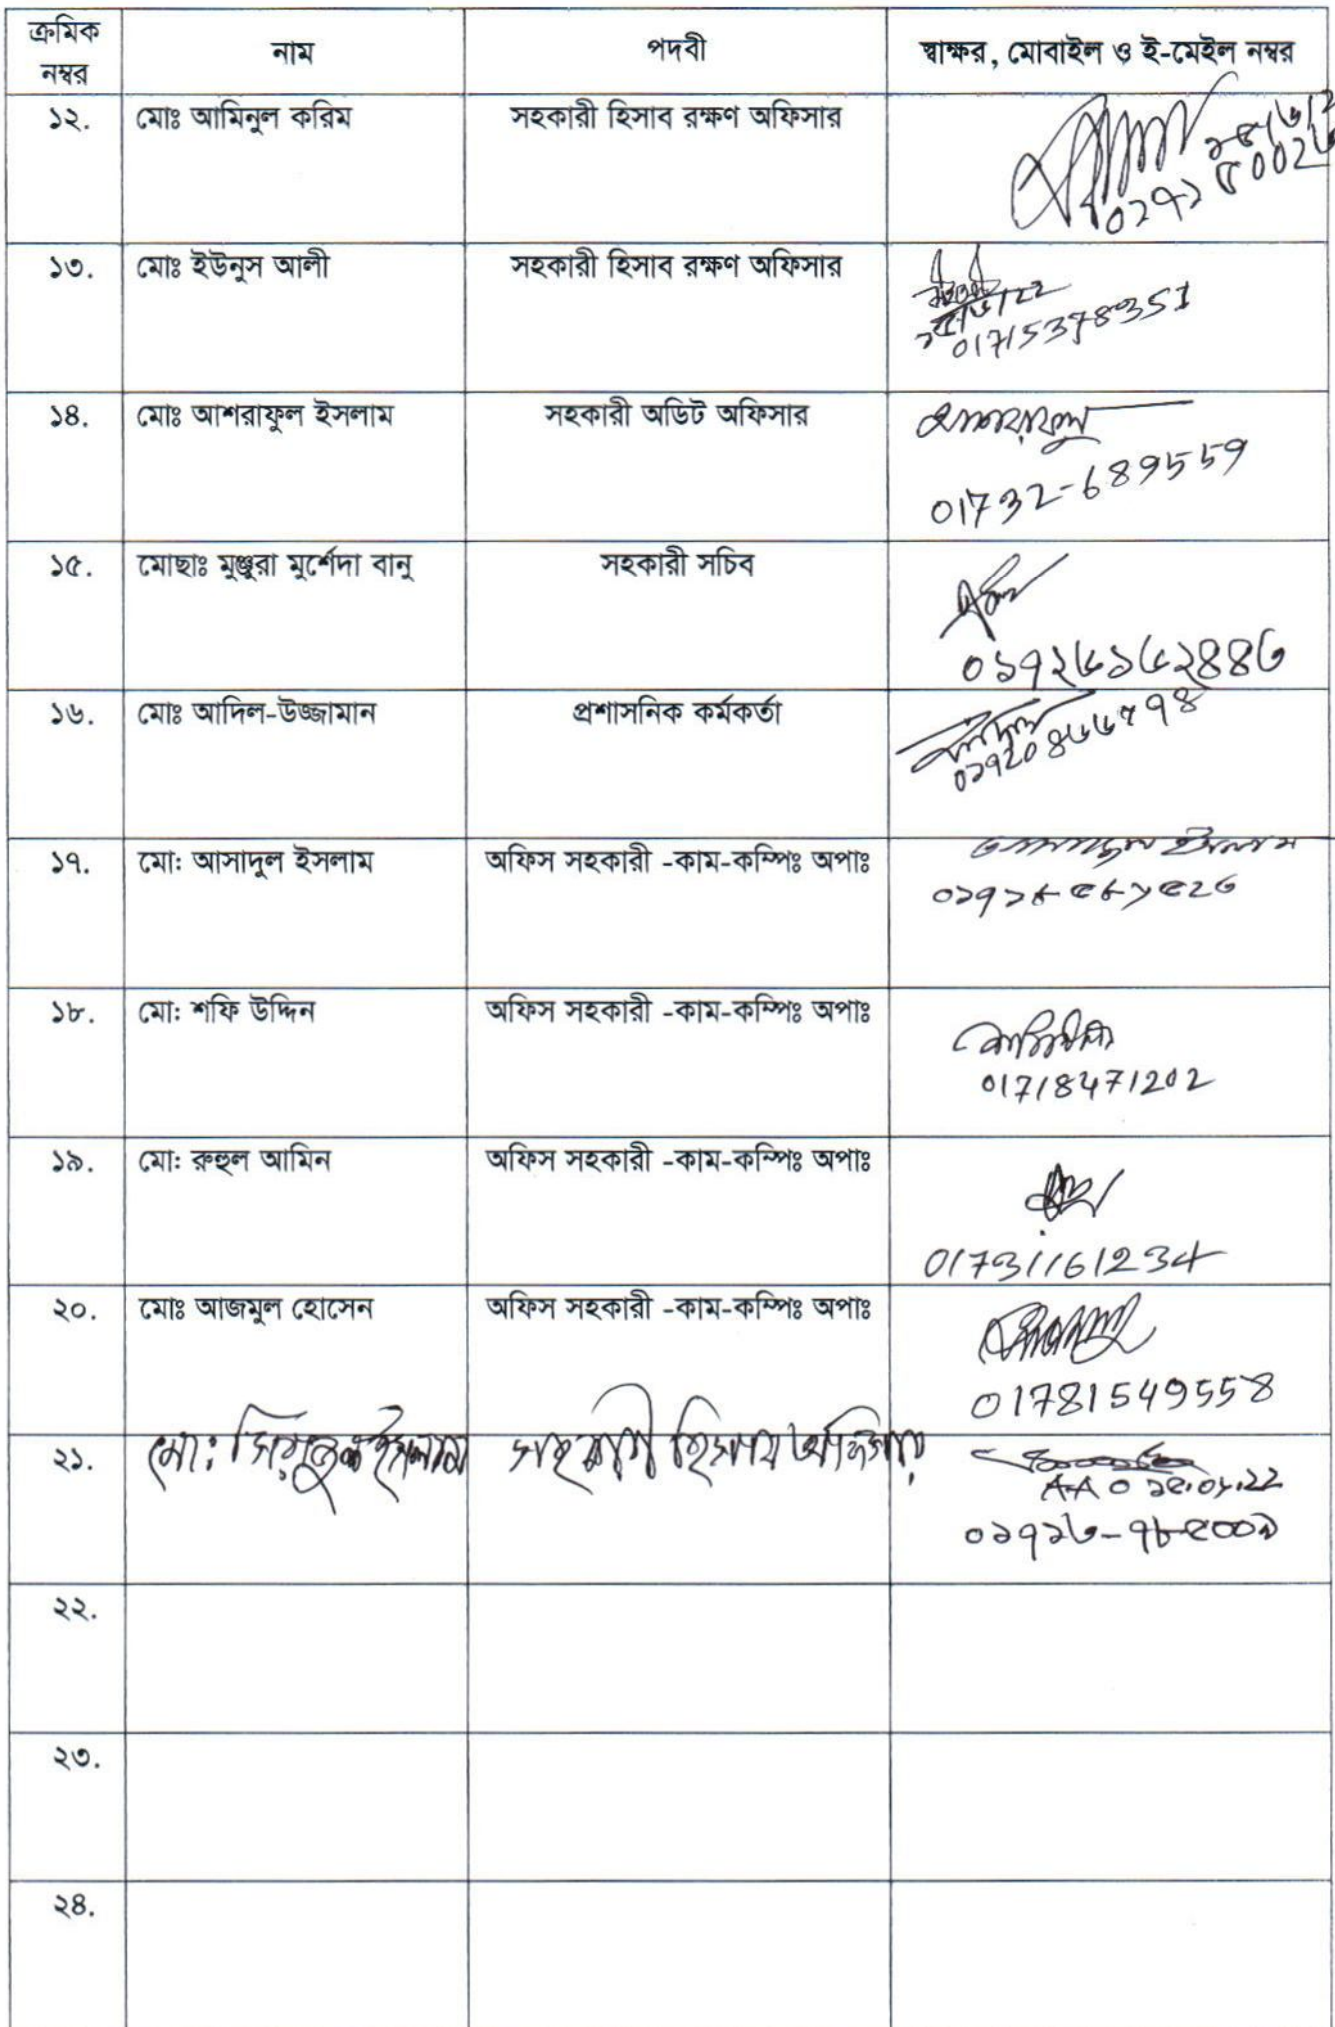 ক্রমিক নম্বর নাম পদবী স্বাক্ষর, মোবাইল ও ই-মেইল নম্বর
১২. মোঃ আমিনুল করিম সহকারী হিসাব রক্ষণ অফিসার
১৩. মোঃ ইউনুস আলী সহকারী হিসাব রক্ষণ অফিসার
01715378351
১৪. মোঃ আশরাফুল ইসলাম সহকারী অডিট অফিসার
01732-689559
১৫. মোছাঃ মুঞ্জুরা মুর্শেদা বানু সহকারী সচিব
১৬. মোঃ আদিল-উজ্জামান প্রশাসনিক কর্মকর্তা
১৭. মো: আসাদুল ইসলাম অফিস সহকারী -কাম-কম্পিঃ অপাঃ
আসাদুল ইসলাম
১৮. মো: শফি উদ্দিন অফিস সহকারী -কাম-কম্পিঃ অপাঃ
01718471202
১৯. মো: রুহুল আমিন অফিস সহকারী -কাম-কম্পিঃ অপাঃ
01731161234
২০. মোঃ আজমুল হোসেন অফিস সহকারী -কাম-কম্পিঃ অপাঃ
01781549558
২১. মো: ইসলাম সহকারী হিসাব অফিসার
AAO
০১৭১৬-৭৮৫০০৯
২২.
২৩.
২৪.